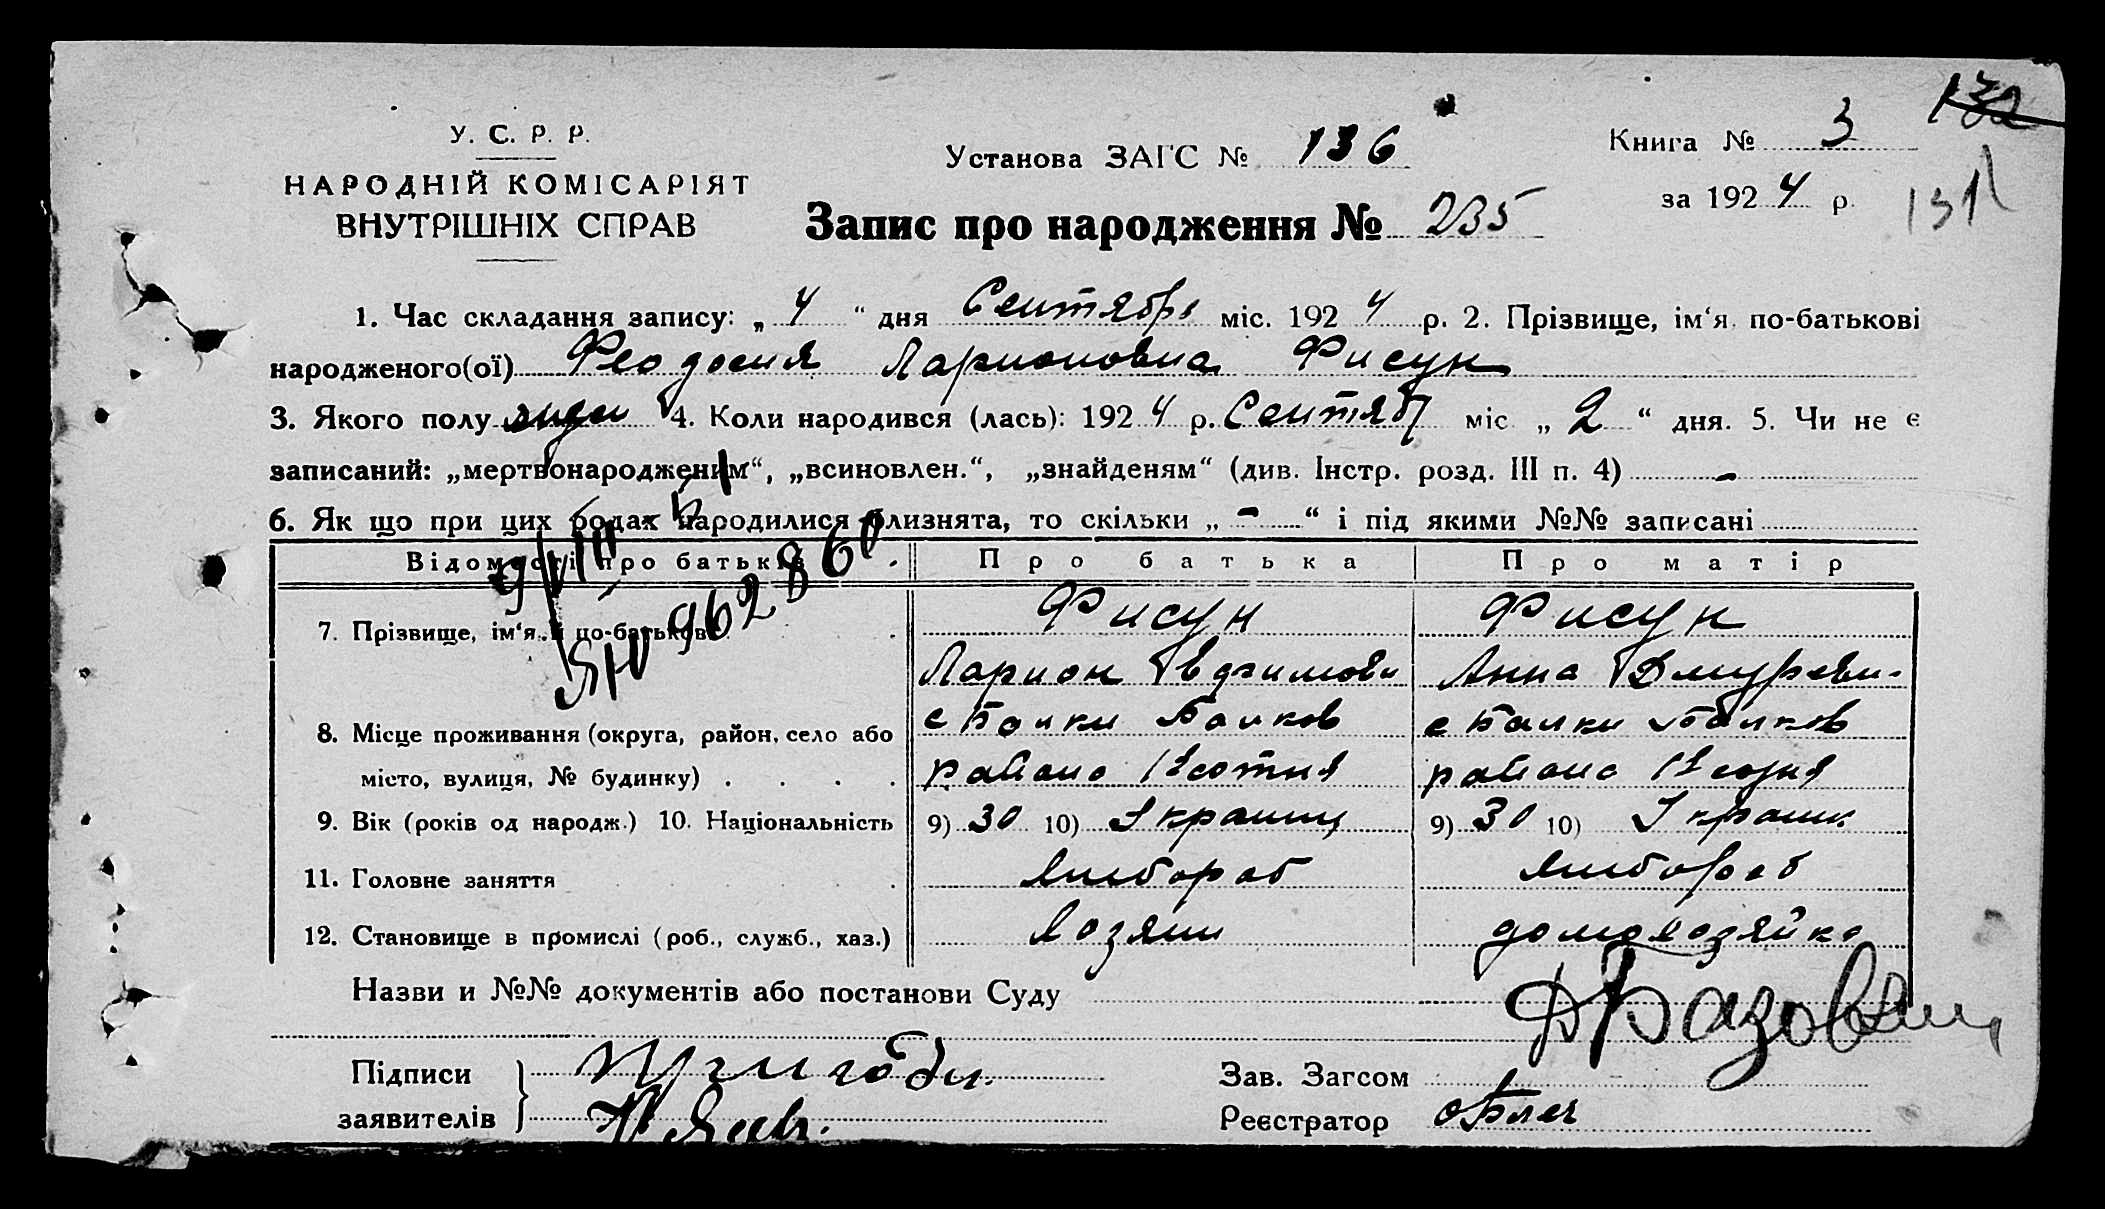 У. С. Р. Р.
НАРОДНІЙ КОМІСАРІЯТ
ВНУТРІШНІХ СПРАВ
Установа ЗАГС № 136
Книга № 3
132
за 1924 р.
131
Запис про народження № 235
1. Час складання запису: „ 4 “ дня Сентябрь міс. 1924 р. 2. Прізвище, ім‘я, по-батькові
народженого(ої) Феодосия Ларионовна Фисун
3. Якого полу 4. Коли народився (лась): 1924 р. Сентябр міс. „ 2 “ дня. 5. Чи не є
записаний: „мертвонародженим“, „всиновлен.“, „знайденям“ (див. Інстр. розд. III п. 4) -
6. Як що при цих родах народилися близнята, то скільки „ - “ і під якими №№ записані
Відомості про батьків
Про батька
Про матір
7. Прізвище, ім‘я й по-батькові
Фисун
Фисун
Ларион
Анна
8. Місце проживання (округа, район, село або
с Балки
с Балки
місто, вулиця, № будинку)
района 12 сотня
района 12 сотня
9. Вік (років од народж.) 10. Національність
9) 30 10) Украинц
9) 30 10) Украинк
11. Головне заняття
Хлебороб
Хлебороб
12. Становище в промислі (роб., служб., хаз.)
Хозяин
домохозяйка
ЯЮ 962860
Назви и №№ документів або постанови Суду
Підписи
заявителів
Зав. Загсом
Реєстратор